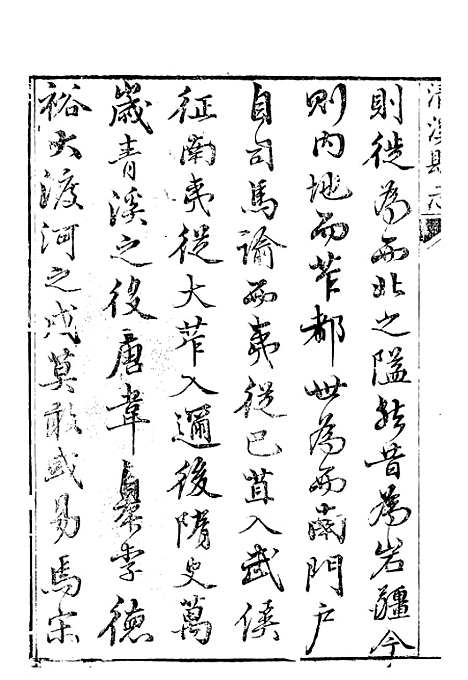 清溪縣志
則徙為西北之隘然昔為岩疆今
則內地而莋都世為西南門户
自司馬諭西夷從巴苴入武侯
征南夷從大莋入邇後隋史萬
歲青溪之役唐韋皋李德
裕大渡河之戍莫敢或易馬宋